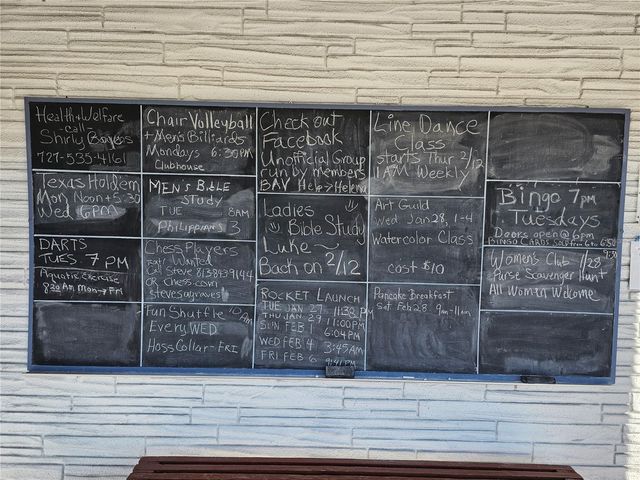 Health & Welfare
- call -
Shirly Boyers
727-535-4161
Texas Holdem
Mon Noon + 5:30
Wed 6PM
DARTS
TUES 7 PM
Aquatic Exercise
830 AM Mon → Fri
Chair Volleyball
+ Men's Billiards
Mondays 6:30PM
Clubhouse
MEN'S BIBLE
STUDY
TUE 8AM
PHILIPPIANS 3
Chess Players
Wanted
Call Steve 813 839 9144
OR Chess.com
Stevesograves
Fun Shuffle 10 AM
Every WED
Hoss Collar - FRI
Check out
Facebook
Unofficial Group
run by members
BAV Help > Helena
Ladies
Bible Study
Luke ~
Back on 2/12
ROCKET LAUNCH
TUE JAN 27 11:38 PM
THU JAN 29 11:00PM
SUN FEB 1 6:04PM
WED FEB 4 3:45AM
FRI FEB 6 9:41PM
Line Dance
Class
starts Thur 2/12
11AM Weekly
Art Guild
Wed Jan 28, 1-4
Watercolor Class
cost $10
Pancake Breakfast
Sat Feb 28 9am-11am
Bingo 7pm
Tuesdays
Doors open @ 6pm
BINGO CARDS SOLD from 6 to 6:50
Women's Club 1/28
Purse Scavenger Hunt
All Women Welcome